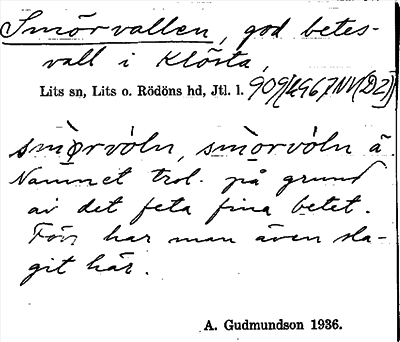 Smörvallen, god betes-
vall i Klösta,
Lits sn, Lits o. Rödöns hd, Jtl. l.
smørvóln, smòrvóln ä.
Namnet trol. på grund
av det feta fina betet.
Förr har man även sla-
git här.
A. Gudmundson 1936.